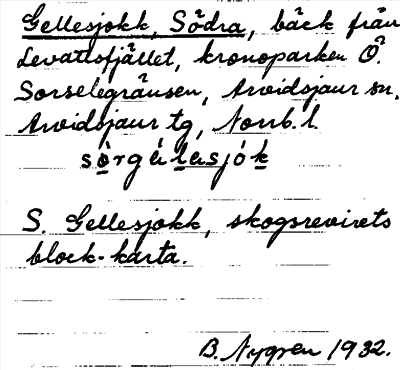 Gellesjokk, Södra, bäck från
Levattsfjället, kronoparken Ö.
Sorselegränsen, Arvidsjaur sn,
Arvidsjaur tg, Norrb. l.
S. Gellesjokk, skogsrevirets
block-karta.
B. Nygren 1932.